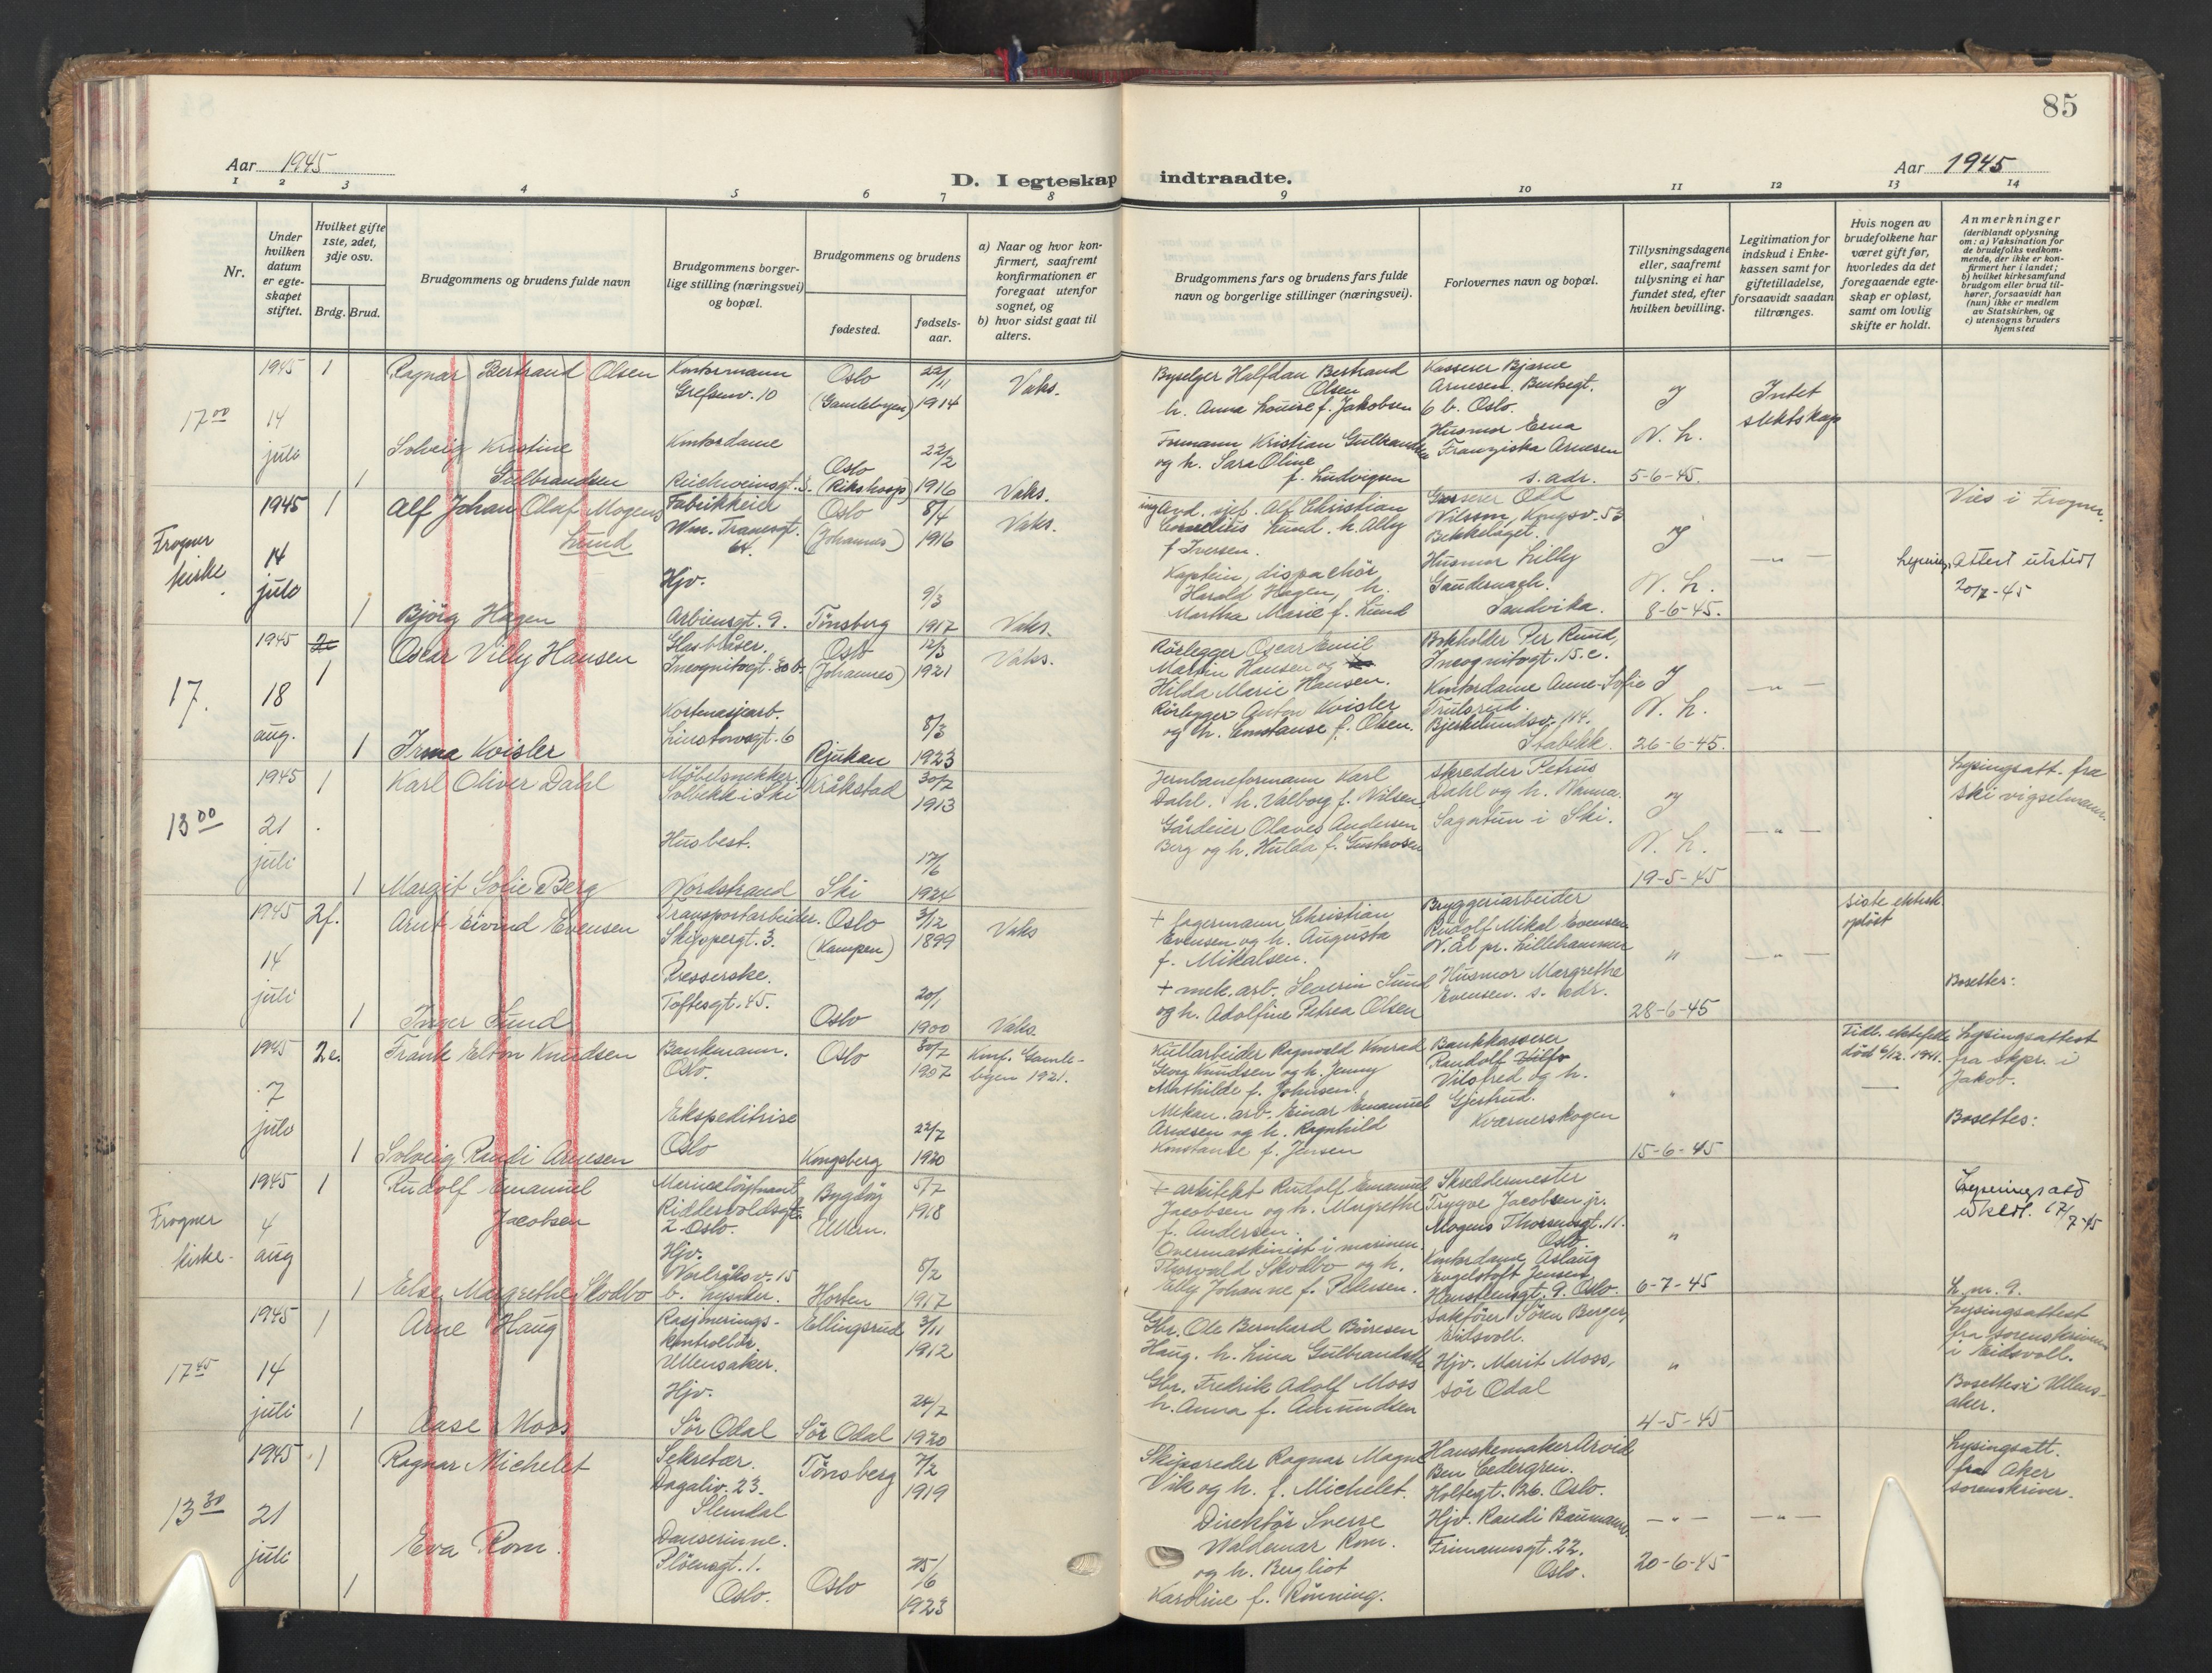 85
Aar 1945
D. I egteskap indtraadte.
Aar 1945
1 2 3 4 5 6 7 8 9 10 11 12 13 14
Nr.
Under
hvilken
datum
er egte-
skapet
stiftet.
Hvilket gifte
1ste, 2det,
3dje osv.
Brdg. Brud.
Brudgommens og brudens fulde navn
Brudgommens borger-
lige stilling (næringsvei)
og bopæl.
Brudgommens og brudens
fødested.
fødsels-
aar.
a) Naar og hvor kon-
firmert, saafremt
konfirmationen er
foregaat utenfor
sognet, og
b) hvor sidst gaat til
alters.
Brudgommens fars og brudens fars fulde
navn og borgerlige stillinger (næringsvei).
Forlovernes navn og bopæl.
Tillysningsdagene
eller, saafremt
tillysning ei har
fundet sted, efter
hvilken bevilling.
Legitimation for
indskud i Enke-
kassen samt for
giftetilladelse,
forsaavidt saadan
tiltrænges.
Hvis nogen av
brudefolkene har
været gift før,
hvorledes da det
foregaaende egte-
skap er opløst,
samt om lovlig
skifte er holdt.
Anmerkninger
(deriblandt oplysning
om: a) Vaksination for
de brudefolks vedkom-
mende, der ikke er kon-
firmert her i landet;
b) hvilket kirkesamfund
brudgom eller brud til-
hører, forsaavidt han
(hun) ikke er medlem
av Statskirken, og
c) utensogns bruders
hjemsted
17 00
1945
14
julo
1
Ragnar Bertrand Olsen
Kontormann
Grefsenv. 10
Oslo
(Gamlebyen)
22/11
1914
Vaks.
Byselger Halfdan Bertrand
Olsen
h. Anna Louise f. Jakobsen
Kasserer Bjarne
Arnesen. Bentsegt.
6 b. Oslo.
Intet
slektskap
1
Solveig Kristine
Gulbrandsen
Kontordame
Oslo
(Rikshosp)
22/2
1916
Vaks.
Formann Kristian Gulbrandsen
og h. Sara Oline
f. Ludvigsen
Husmor Erna
Franziska Arnesen
s. adr.
N. h.
5-6-45.
Frogner
kirke.
1945
14
julo
1
Alf Johan Olaf Mogens
Lund
Fabrikkeid
Wm. Tranesgt.
Oslo
(Johannes)
8/4
1916
Vaks.
And. sjef. Alf Christian
Cornelius Lund. h. Ally
f. Iversen.
Grosserer Odd
Nilsson, Kongsv. 53
Bekkelaget.
— " —
Vies i Frogner.
1
Björg Hagen
Hjv.
Arbiensgt. 9.
Tønsberg
9/3
1917
Vaks.
Kaptein, dispachör
Harald Hagen, h.
Martha Marie f. Lund
Husmor Lilly
Sandvika.
N. h.
8-6-45.
Attest utstedt
20/7-45
17.
1945
18
aug.
1
Oscar Villy Hansen
Glasblåser.
Incognitogt. 30 b.
Oslo
(Johannes)
12/3
1921
Vaks.
Rörlegger Oscar Emil
Martin Hansen og
Hilda Marie Hansen.
Bokholder Per Ruud,
Incognitogt. 15. c.
— " —
1
Irma Kvisler
Kortenasjearb.
Linstowsgt. 6
Rjukan
8/3
1923
Rörlegger Anton Kvisler
og h. Constanse f. Olsen.
Kontordame Anne-Sofie
Trulsrud.
Bjerkelundsv. 114.
Stabekk.
N. h.
26-6-45.
13 00
1945
21
juli
1
Karl Oliver Dahl
Møbelsnekker.
Solbekk i Ski
Kråkstad
30/7
1913
Jernbaneformann Karl
Dahl. h. Valborg f. Nilsen
Skredder Petrus
Dahl og h. Nanna.
Sagatun i Ski.
— " —
Lysingsatt. fra
Ski vigselmann.
1
Margit Sofie Berg
Husbest.
Nordstrand
Ski
17/6
1924
Gårdeier Olaves Andersen
Berg og h. Hulda f. Gustavsen
N. h.
19-5-45
1945
14
juli
2 f.
Arnt Eivind Evensen
Transportarbeider.
Skippergt. 3.
Oslo
(Kampen)
3/12
1899
Vaks
+ Lagermann Christian
Evensen og h. Augusta
f. Mikalsen.
Bryggeriarbeider
Rudolf Mikal Evensen
N. Ål pr. Lillehammer
"
— " —
siste ektesk
opløst
1
Inger Lund
Presserske.
Toftesgt. 45.
Oslo
20/1
1900
Vaks.
+ mek. arb. Severin Lund
og h. Adolfine Petrea Olsen
Husmor Margrethe
Evensen. s. adr.
28-6-45
Bosettes:
1945
7
julo
2 e.
Frank Elton Knudsen
Bankmann.
Oslo.
Oslo
30/7
1907
Konf. Gamle-
byen 1921.
Kullarbeider Ragnvald Konrad
Georg Knudsen og h. Jenny
Mathilde f. Johnsen.
Bankkasserer
Randolf
Vilofred og h.
Gjertrud.
Kværnerskogen
Tidl. ektefelle
død 6/12. 1941.
Lysingsattest
fra skpr. i
Jakob.
1
Solveig Randi Arnesen
Ekspeditrise
Oslo
Kongsberg
22/7
1920
Mekan. arb. Einar Emanuel
Arnesen og h. Ragnhild
Konstanse f. Jensen
15-6-45
Bosettes:
Frogner
kirke.
1945
4
aug
1
Rudolf Emanuel
Jacobsen
Marineløytnant
Riddervoldsgt.
2 Oslo.
Bygdøy
Ullern.
5/7
1918
+ arkitekt Rudolf Emanuel
Jacobsen og h. Margrethe
f. Andersen.
Skreddermester
Trygve Jacobsen jr.
Mogens Thorsensgt. 11.
Oslo.
"
1
Else Margrethe Skodbo
Hjv.
b. Lysaker.
Horten
8/2
1917
Overmaskinist i marinen
Thorvald Skodbo og h.
Elly Johanne f. Pedersen.
Kontordame Aslaug
Engelstoft Jensen
6-7-45
L. nr. 9.
17 45
1945
14
juli
1
Arne Haug
Rasjonerings-
kontrollör
Ullensaker.
Ellingsrud
3/11
1912
Gbr. Ole Bernhard Børresen
Haug. h. Lina Gulbrandsdtr
Sakfører Sören Berger,
Eidsvoll.
"
Lysingsattest
fra sorenskriveren
i Eidsvoll.
1
Aase Moss
Hjv.
Sör Odal
Sör Odal
24/7
1920
Gbr. Fredrik Adolf Moss
h. Anna f. Amundsen
Hjv. Marit Moss,
Sör Odal
4-5-45
Bosettes i Ullens-
aker.
13 30
1945
21
juli
1
Ragnar Michelet
Sekretær.
Dagaliv. 23.
Slemdal
Tönsberg
7/2
1919
Skipsreder Ragnar Magne
Vik og h. f. Michelet.
Hanskemaker Arvid
Ben Cedergren.
Holtegt. 26. Oslo.
— " —
— " —
Lysingsatt.
fra Aker
sorenskriver.
1
Eva Rom.
Danserinne.
Pløensgt. 1.
Oslo.
Oslo
25/6
1923
Direktør Sverre
Waldemar Rom.
og h. Bergliot
Karoline f. Rönning.
Hjv. Randi Baumann.
Frimannsgt. 22.
Oslo.
20-6-45